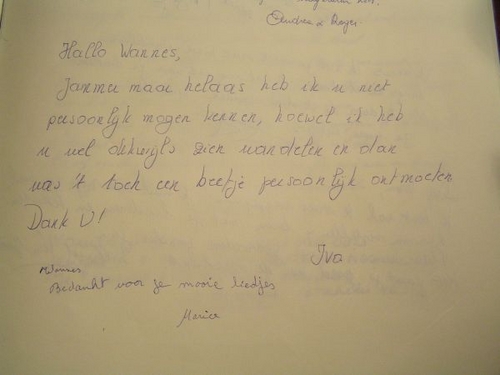 Andrea & Roger.
Hallo Wannes,
Jammer maar helaas heb ik u niet
persoonlijk mogen kennen, hoewel ik heb
u wel dikwijls zien wandelen en dan
was 't toch een beetje persoonlijk ontmoeten.
Dank U!
Iva
Wannes
Bedankt voor je mooie liedjes